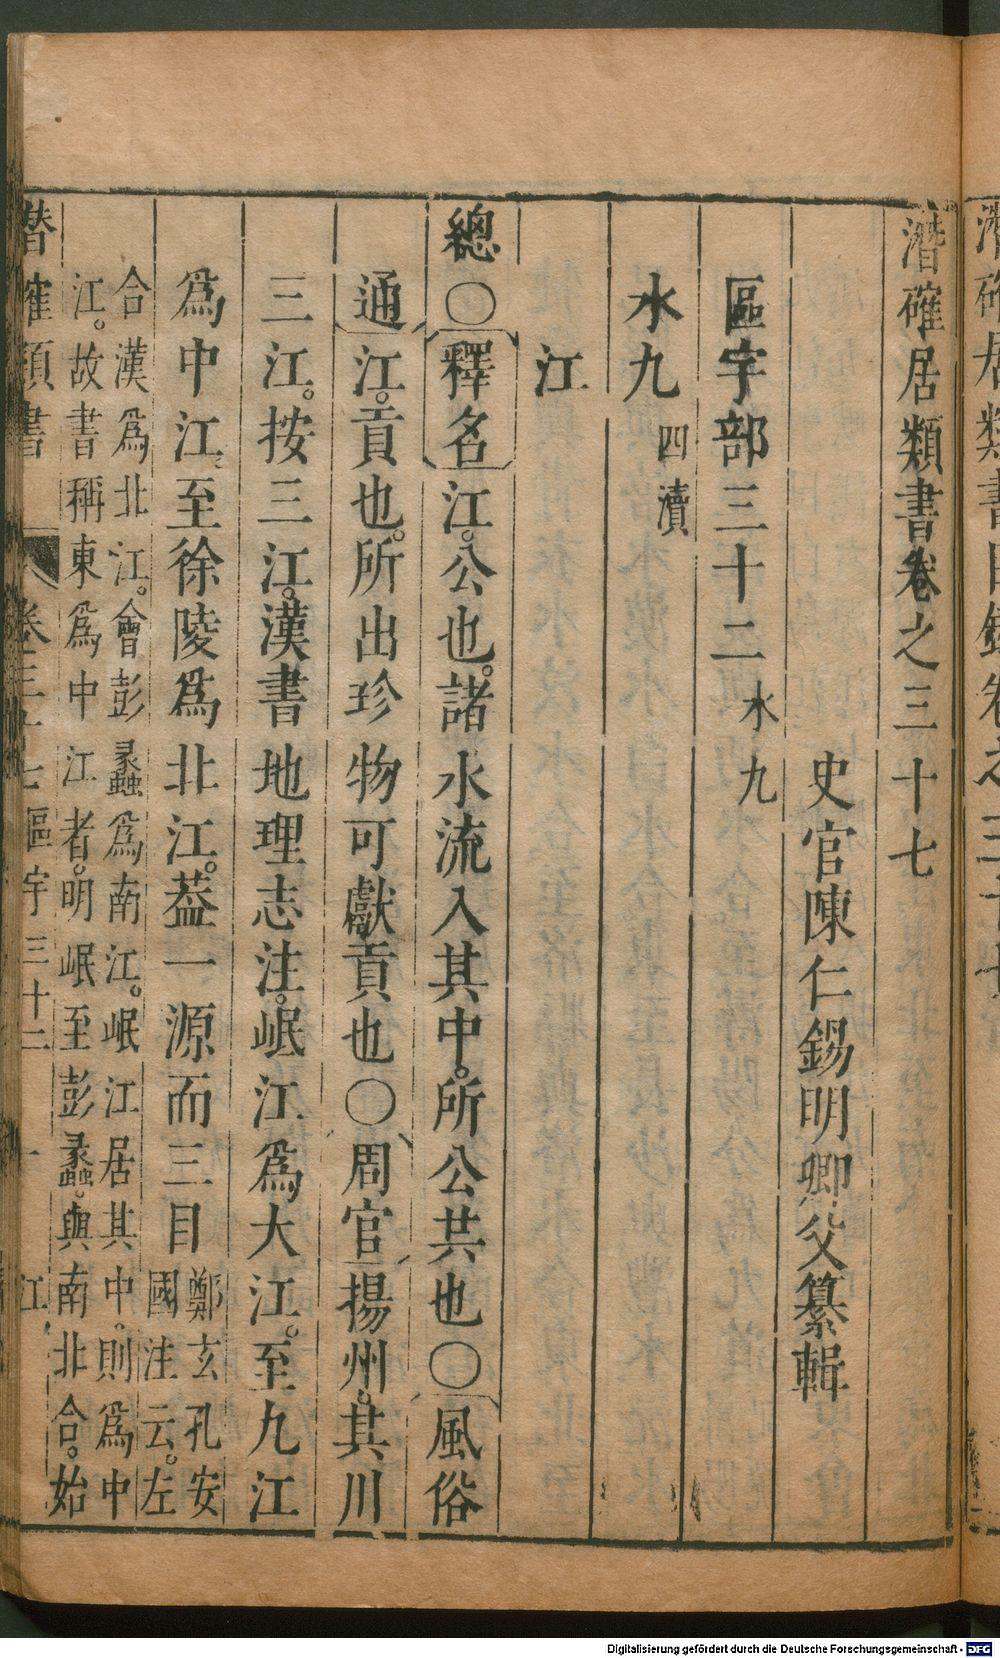 潛確居類書卷之三十七
史官陳仁錫明卿父纂輯
區宇部三十二 水九
水九 四瀆
江
總○釋名江。公也。諸水流入其中。所公共也○風俗
通江。貢也。所出珍物可獻貢也○周官揚州。其川
三江。按三江。漢書地理志注。岷江爲大江。至九江
爲中江。至徐陵爲北江。葢一源而三目 鄭玄孔安
國注云。左
合漢爲北江。會彭蠡爲南江。岷江居其中。則爲中
江。故書稱東爲中江者。明岷至彭蠡。與南北合。始
潛確類書 卷三十七 區宇三十二 一 江
Digitalisierung gefördert durch die Deutsche Forschungsgemeinschaft - DFG